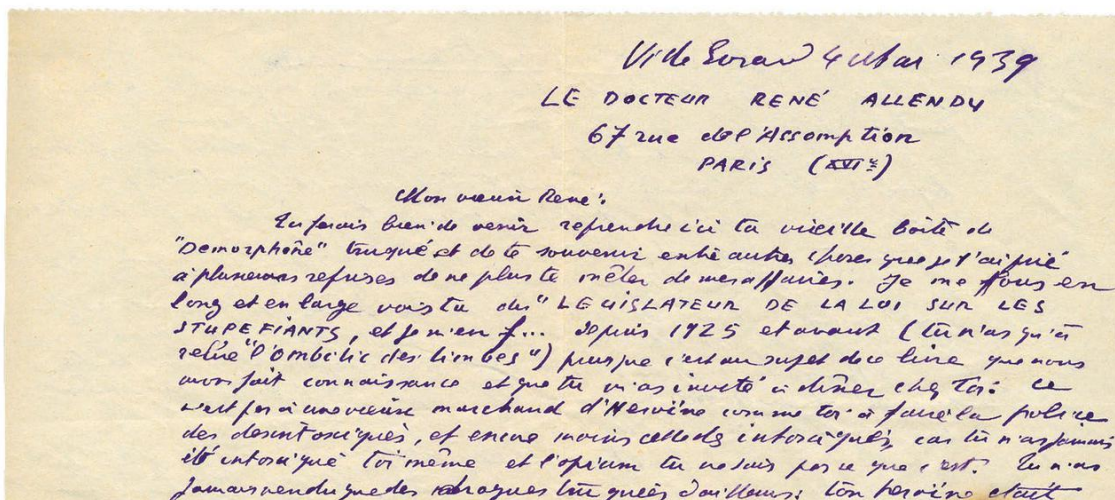 Ville Evrard 4 Mai 1939
LE DOCTEUR RENÉ ALLENDY
67 rue de l'Assomption
PARIS (XVIe)
Mon vieux René:
Tu ferais bien de venir reprendre ici ta vieille boîte de
"Demorphène" truqué et de te souvenir entre autres choses que je t'ai prié
à plusieurs de ne plus te mêler de mes affaires. Je me fous en
long et en large vois tu du "LEGISLATEUR DE LA LOI SUR LES
STUPEFIANTS, et je m'en f... depuis 1925 et avant (tu n'as qu'à
relire "l'Ombilic des limbes") puisque c'est au sujet de ce livre que nous
avons fait connaissance et que tu m'as invité à dîner chez toi. Ce
n'est pas à un marchand d'Héroïne comme toi à faire la police
des désintoxiqués, et encore moins celle des intoxiqués, car tu n'as jamais
été intoxiqué toi même et l'opium tu ne sais pas ce que c'est. Tu n'as
jamais vendu que des drogues truquées d'ailleurs: ton héroïne était